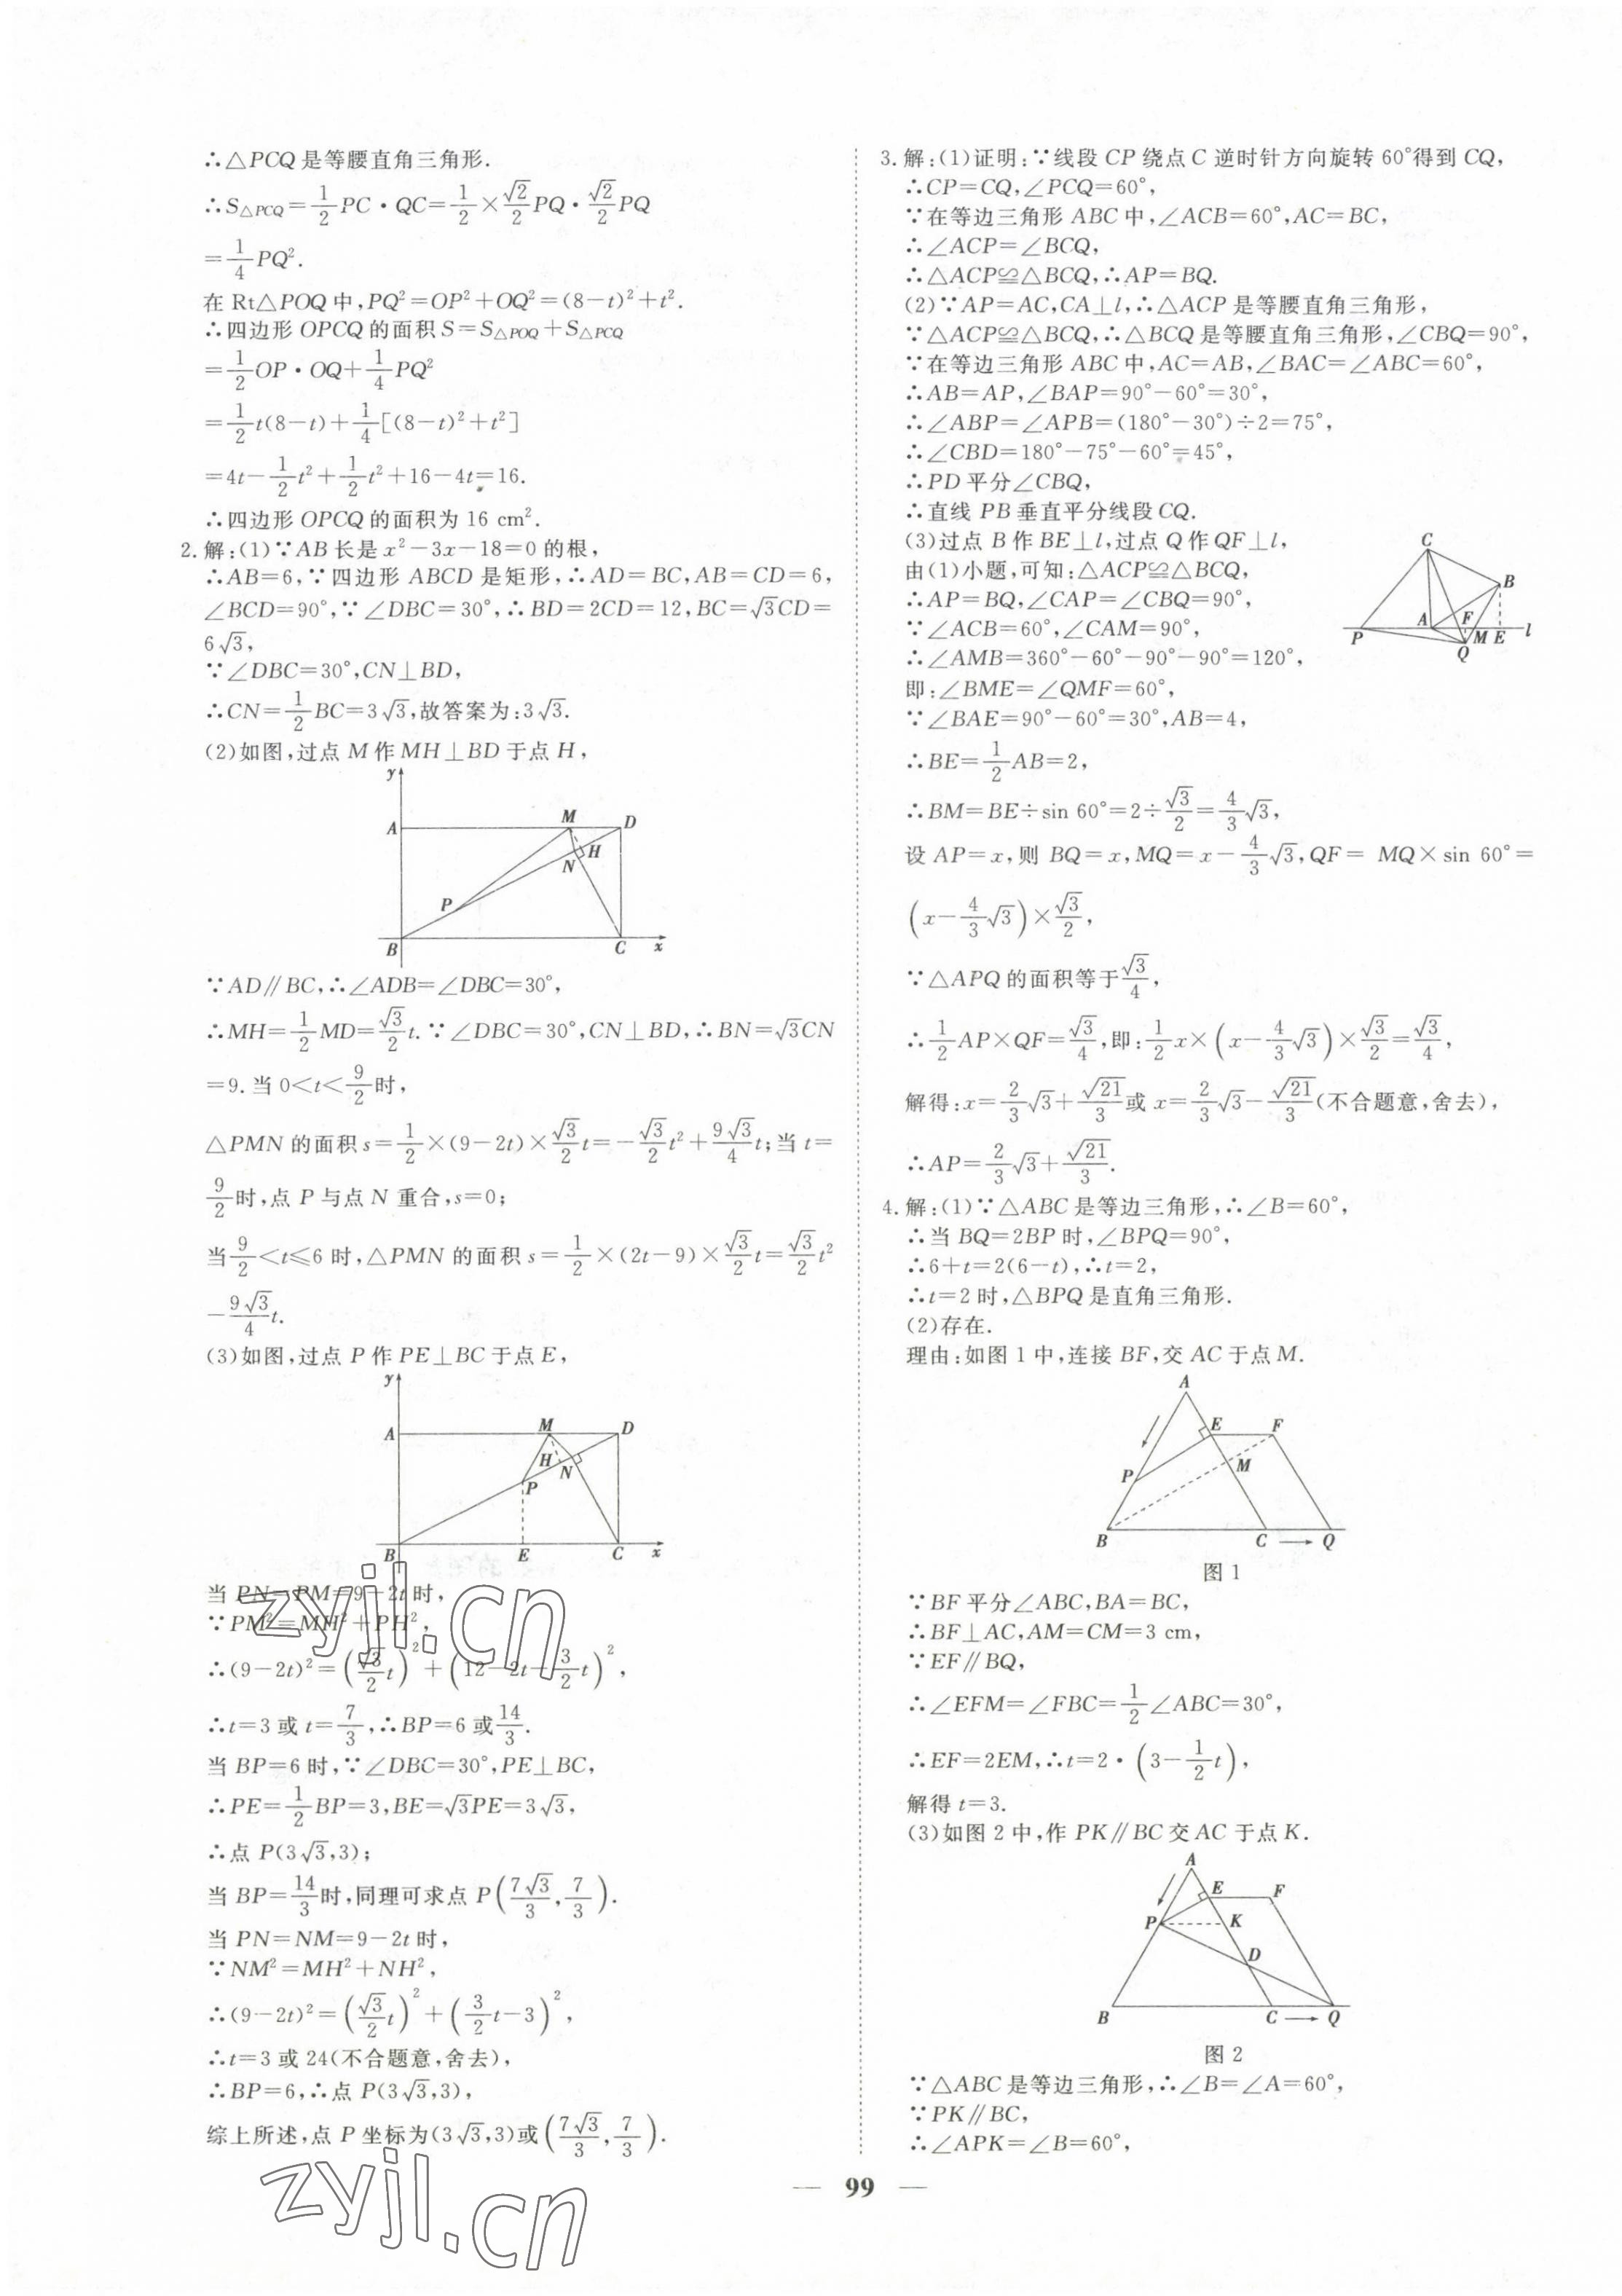 ∴△PCQ 是等腰直角三角形.
∴S△PCQ=1/2 PC·QC=1/2×√2/2 PQ·√2/2 PQ
=1/4 PQ².
在 Rt△POQ 中,PQ²=OP²+OQ²=(8-t)²+t².
∴四边形 OPCQ 的面积 S=S△POQ+S△PCQ
=1/2 OP·OQ+1/4 PQ²
=1/2 t(8-t)+1/4[(8-t)²+t²]
=4t-1/2 t²+1/2 t²+16-4t=16.
∴四边形 OPCQ 的面积为 16 cm².
2.解:(1)∵AB 长是 x²-3x-18=0 的根,
∴AB=6,∵四边形 ABCD 是矩形,∴AD=BC,AB=CD=6,
∠BCD=90°,∵∠DBC=30°,∴BD=2CD=12,BC=√3CD=
6√3,
∵∠DBC=30°,CN⊥BD,
∴CN=1/2 BC=3√3,故答案为:3√3.
(2)如图,过点 M 作 MH⊥BD 于点 H,
y
A M D
H
N
P
B C x
∵AD∥BC,∴∠ADB=∠DBC=30°,
∴MH=1/2 MD=√3/2 t.∵∠DBC=30°,CN⊥BD,∴BN=√3CN
=9.当 0<t<9/2时,
△PMN 的面积 s=1/2×(9-2t)×√3/2 t=-√3/2 t²+9√3/4 t;当 t=
9/2时,点 P 与点 N 重合,s=0;
当9/2<t≤6 时,△PMN 的面积 s=1/2×(2t-9)×√3/2 t=√3/2 t²
-9√3/4 t.
(3)如图,过点 P 作 PE⊥BC 于点 E,
y
A M D
H N
P
B E C x
当 PN=PM=9-2t 时,
∵PM²=MH²+PH²,
∴(9-2t)²=(√3/2 t)²+(12-2t-3/2 t)²,
∴t=3 或 t=7/3,∴BP=6 或14/3.
当 BP=6 时,∵∠DBC=30°,PE⊥BC,
∴PE=1/2 BP=3,BE=√3PE=3√3,
∴点 P(3√3,3);
当 BP=14/3时,同理可求点 P(7√3/3,7/3).
当 PN=NM=9-2t 时,
∵NM²=MH²+NH²,
∴(9-2t)²=(√3/2 t)²+(3/2 t-3)²,
∴t=3 或 24(不合题意,舍去),
∴BP=6,∴点 P(3√3,3),
综上所述,点 P 坐标为(3√3,3)或(7√3/3,7/3).
3.解:(1)证明:∵线段 CP 绕点 C 逆时针方向旋转 60°得到 CQ,
∴CP=CQ,∠PCQ=60°,
∵在等边三角形 ABC 中,∠ACB=60°,AC=BC,
∴∠ACP=∠BCQ,
∴△ACP≌△BCQ,∴AP=BQ.
(2)∵AP=AC,CA⊥l,∴△ACP 是等腰直角三角形,
∵△ACP≌△BCQ,∴△BCQ 是等腰直角三角形,∠CBQ=90°,
∵在等边三角形 ABC 中,AC=AB,∠BAC=∠ABC=60°,
∴AB=AP,∠BAP=90°-60°=30°,
∴∠ABP=∠APB=(180°-30°)÷2=75°,
∴∠CBD=180°-75°-60°=45°,
∴PD 平分∠CBQ,
∴直线 PB 垂直平分线段 CQ.
(3)过点 B 作 BE⊥l,过点 Q 作 QF⊥l,
由(1)小题,可知:△ACP≌△BCQ,
∴AP=BQ,∠CAP=∠CBQ=90°,
∵∠ACB=60°,∠CAM=90°,
∴∠AMB=360°-60°-90°-90°=120°,
即:∠BME=∠QMF=60°,
∵∠BAE=90°-60°=30°,AB=4,
∴BE=1/2 AB=2,
∴BM=BE÷sin 60°=2÷√3/2=4/3√3,
C
B
A F
P Q M E l
设 AP=x,则 BQ=x,MQ=x-4/3√3,QF= MQ×sin 60°=
(x-4/3√3)×√3/2,
∵△APQ 的面积等于√3/4,
∴1/2 AP×QF=√3/4,即:1/2 x×(x-4/3√3)×√3/2=√3/4,
解得:x=2/3√3+√21/3或 x=2/3√3-√21/3(不合题意,舍去),
∴AP=2/3√3+√21/3.
4.解:(1)∵△ABC 是等边三角形,∴∠B=60°,
∴当 BQ=2BP 时,∠BPQ=90°,
∴6+t=2(6-t),∴t=2,
∴t=2 时,△BPQ 是直角三角形.
(2)存在.
理由:如图 1 中,连接 BF,交 AC 于点 M.
A
E F
P M
B C Q
图 1
∵BF 平分∠ABC,BA=BC,
∴BF⊥AC,AM=CM=3 cm,
∵EF∥BQ,
∴∠EFM=∠FBC=1/2∠ABC=30°,
∴EF=2EM,∴t=2·(3-1/2 t),
解得 t=3.
(3)如图 2 中,作 PK∥BC 交 AC 于点 K.
A
E F
P K
D
B C Q
图 2
∵△ABC 是等边三角形,∴∠B=∠A=60°,
∵PK∥BC,
∴∠APK=∠B=60°,
99
zyjl.cn
zyjl.cn